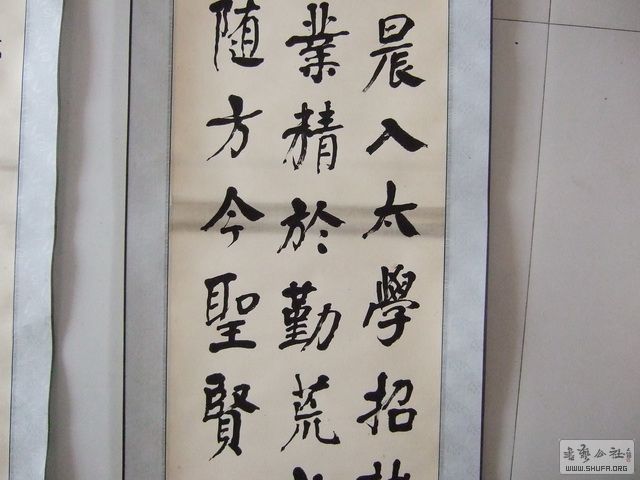 晨入太學招
業精於勤荒
随方今聖賢
WWW.SHUFA.ORG